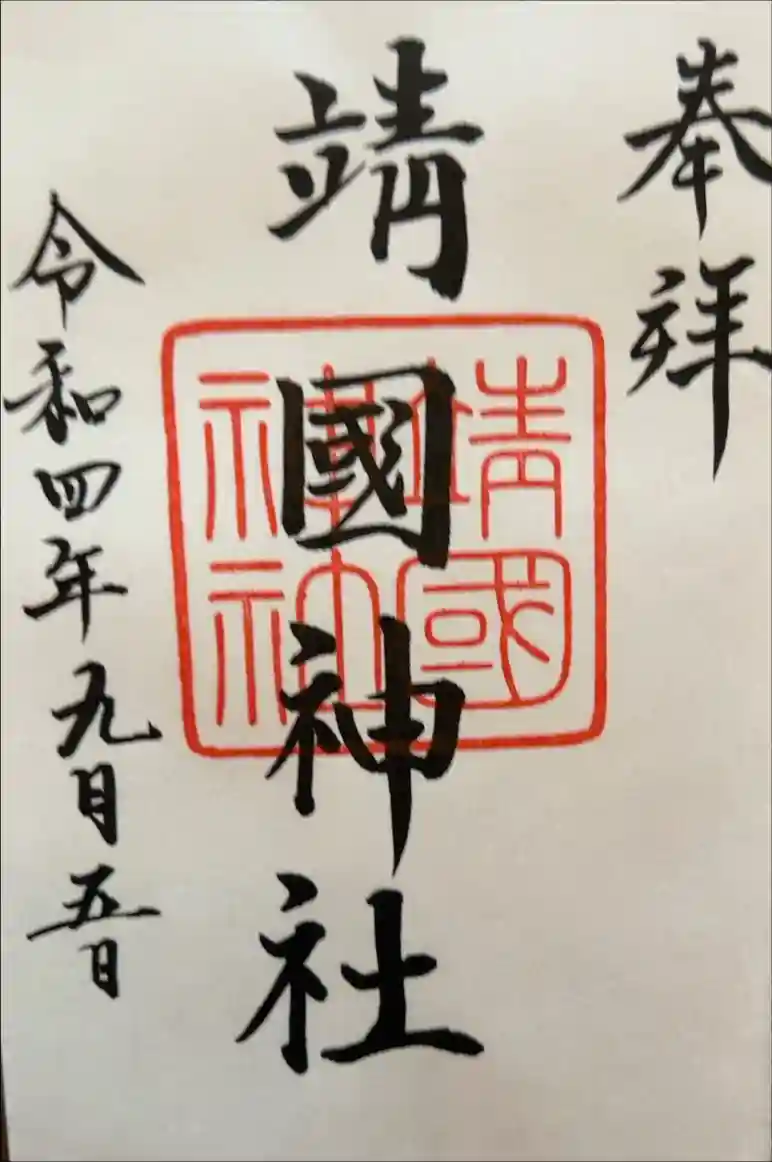 奉拜
靖國神社
靖國神社
令和四年九月五日